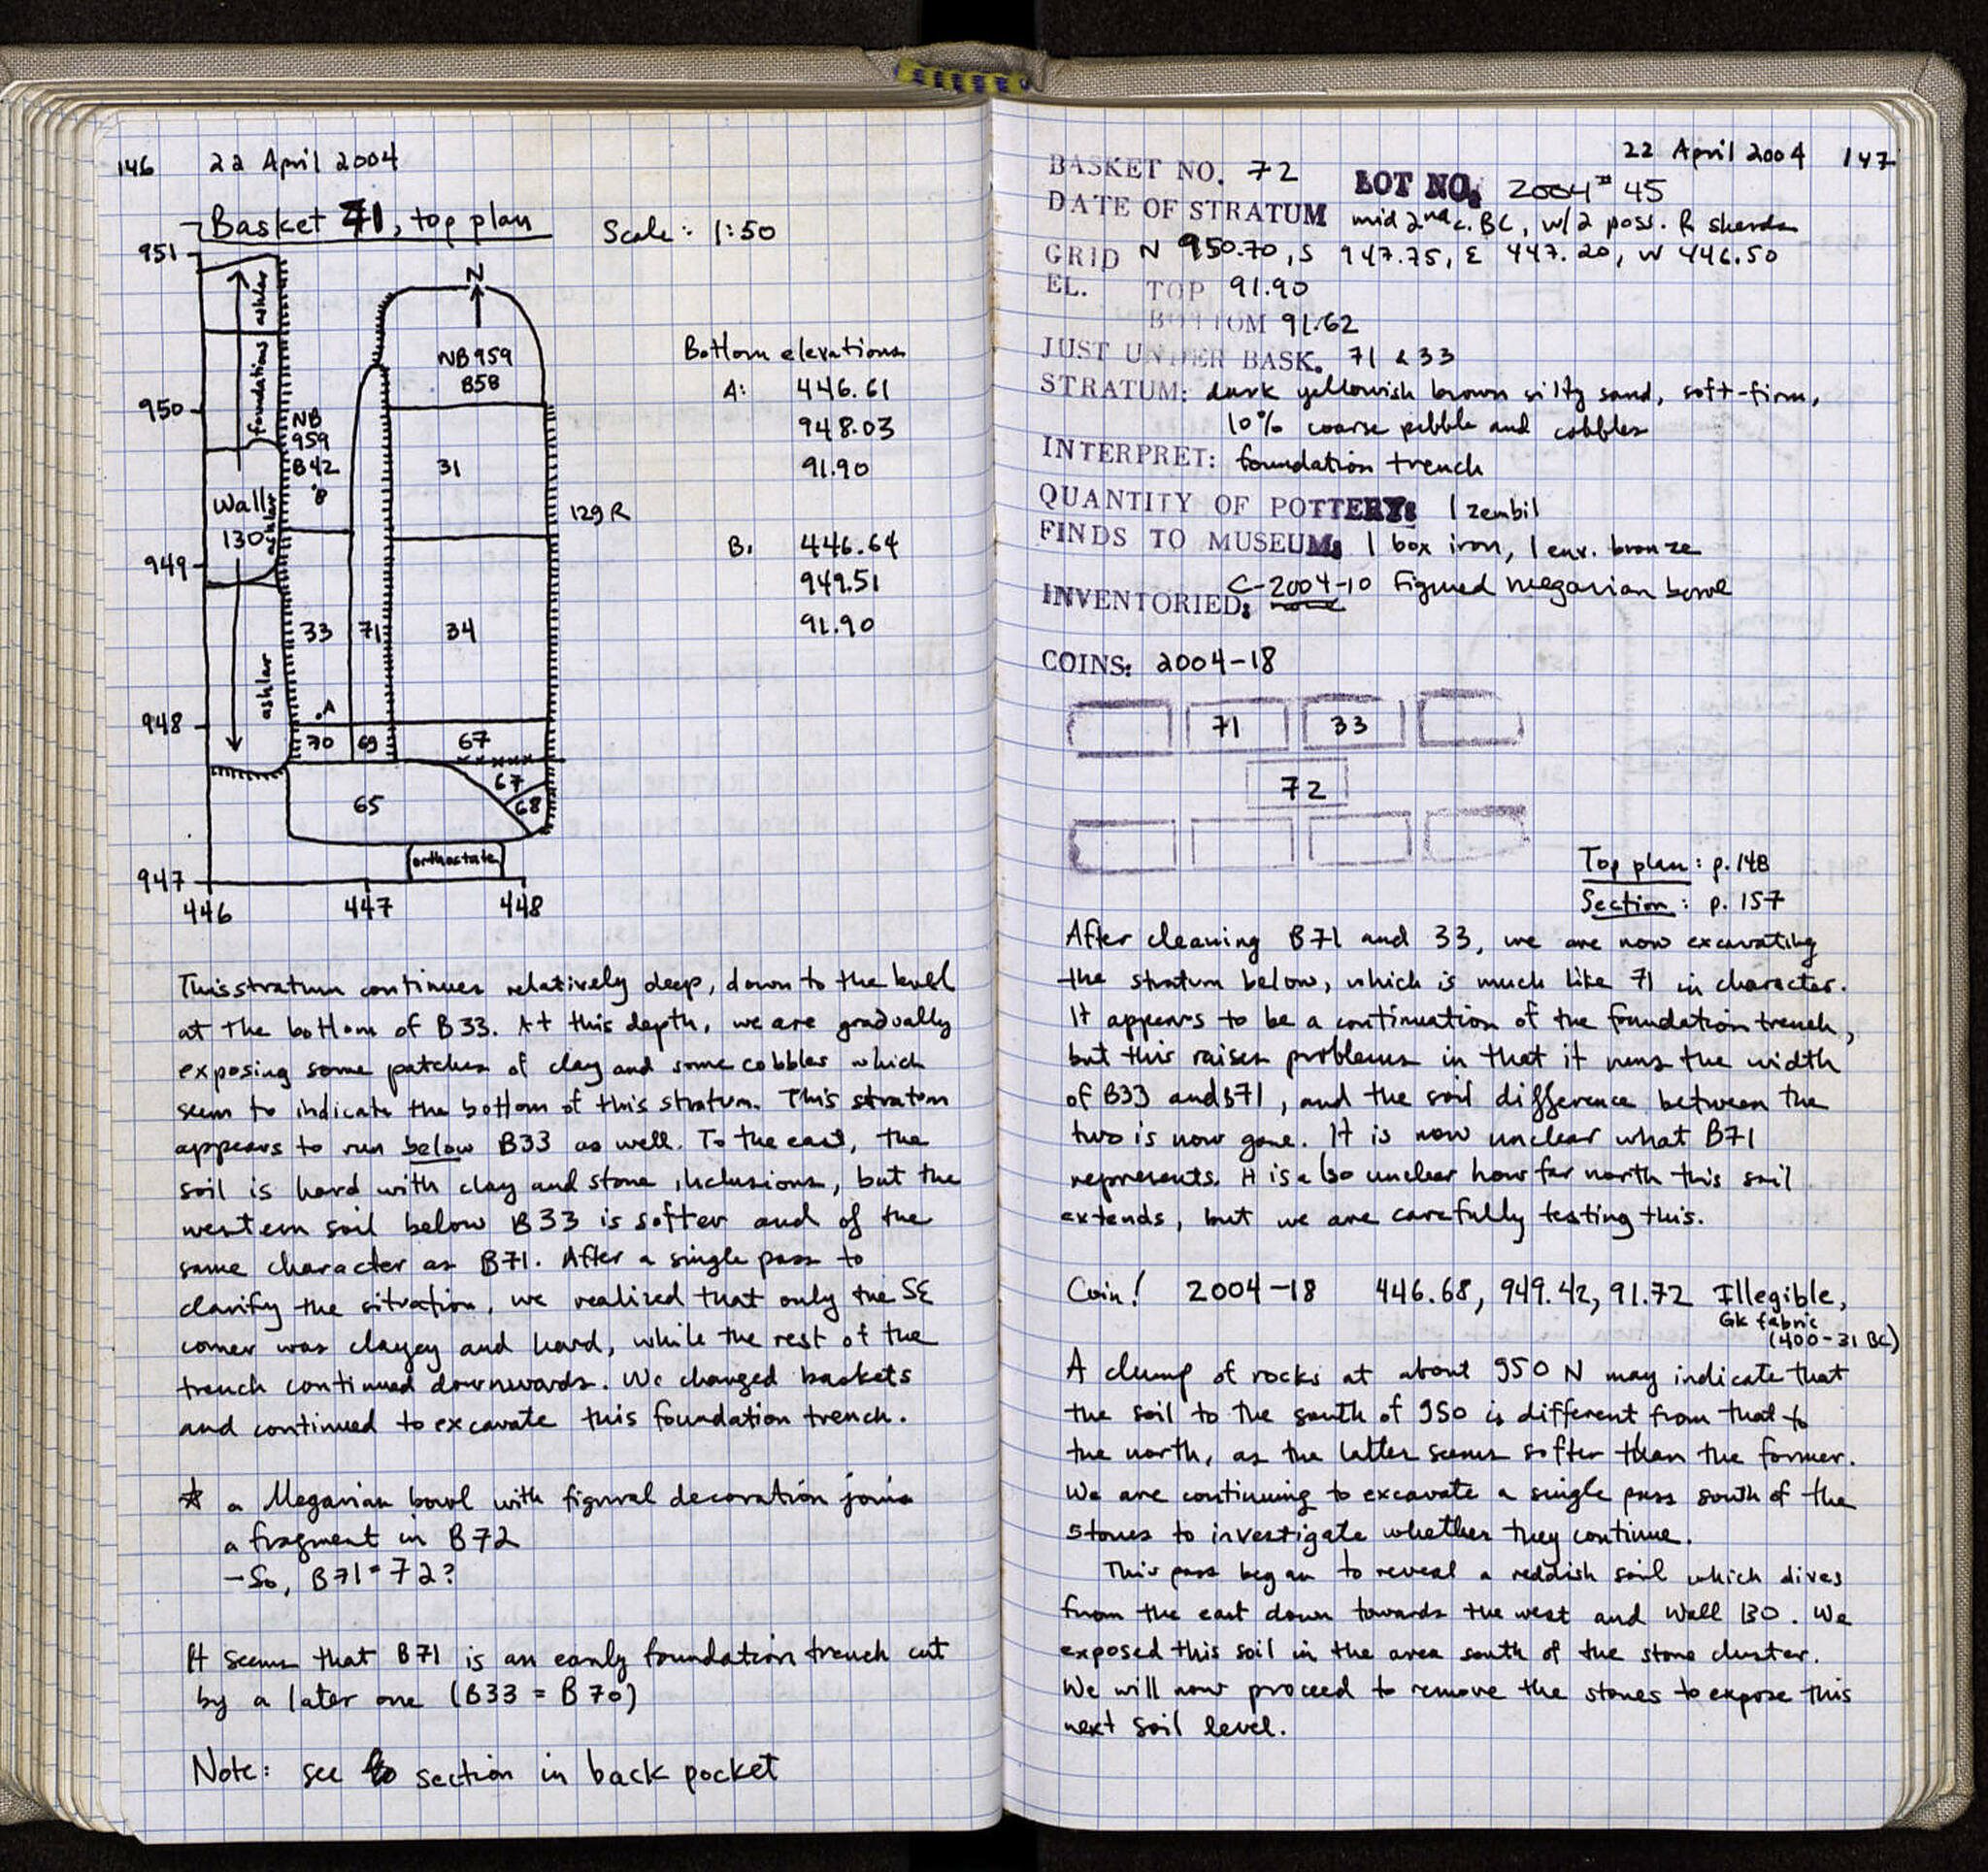 146 22 April 2004
Basket 71, top plan Scale: 1:50
951
N
ashlar
foundations
NB959
B58
Bottom elevations
A: 446.61
948.03
91.90
950
NB
959
B42
B
31
129 R
Wall
130
ashlar
B. 446.64
949.51
91.90
949
33 71 34
ashlar
.A
948
70 69 67
67
65 68
orthostate
947
446 447 448
This stratum continues relatively deep, down to the level
at the bottom of B33. At this depth, we are gradually
exposing some patches of clay and some cobbles which
seem to indicate the bottom of this stratum. This stratum
appears to run below B33 as well. To the east, the
soil is hard with clay and stone inclusions, but the
western soil below B33 is softer and of the
same character as B71. After a single pass to
clarify the situation, we realized that only the SE
corner was clayey and hard, while the rest of the
trench continued downwards. We changed baskets
and continued to excavate this foundation trench.
☆ a Megarian bowl with figural decoration joins
a fragment in B72
- So, B71=72?
It seems that B71 is an early foundation trench cut
by a later one (B33 = B70)
Note: see section in back pocket
22 April 2004 147
BASKET NO. 72 LOT NO. 2004-45
DATE OF STRATUM mid 2nd c. BC, w/2 poss. R sherds
GRID N 950.70, S 947.75, E 447.20, W 446.50
EL. TOP 91.90
BOTTOM 91.62
JUST UNDER BASK. 71 & 33
STRATUM: dark yellowish brown silty sand, soft-firm,
10% coarse pebble and cobbles
INTERPRET: foundation trench
QUANTITY OF POTTERY: 1 zembil
FINDS TO MUSEUM: 1 box iron, 1 env. bronze
INVENTORIED: C-2004-10 Figured megarian bowl
none
COINS: 2004-18
71 33
72
Top plan: p.148
Section: p. 157
After cleaning B71 and 33, we are now excavating
the stratum below, which is much like 71 in character.
It appears to be a continuation of the foundation trench,
but this raises problems in that it runs the width
of B33 and B71, and the soil difference between the
two is now gone. It is now unclear what B71
represents. It is also unclear how far north this soil
extends, but we are carefully testing this.
Coin! 2004-18 446.68, 949.42, 91.72 Illegible,
Gk fabric
(400-31 BC)
A clump of rocks at about 950 N may indicate that
the soil to the south of 950 is different from that to
the north, as the latter seems softer than the former.
We are continuing to excavate a single pass south of the
stones to investigate whether they continue.
This pass began to reveal a reddish soil which dives
from the east down towards the west and Wall 130. We
exposed this soil in the area south of the stone cluster.
We will now proceed to remove the stones to expose this
next soil level.